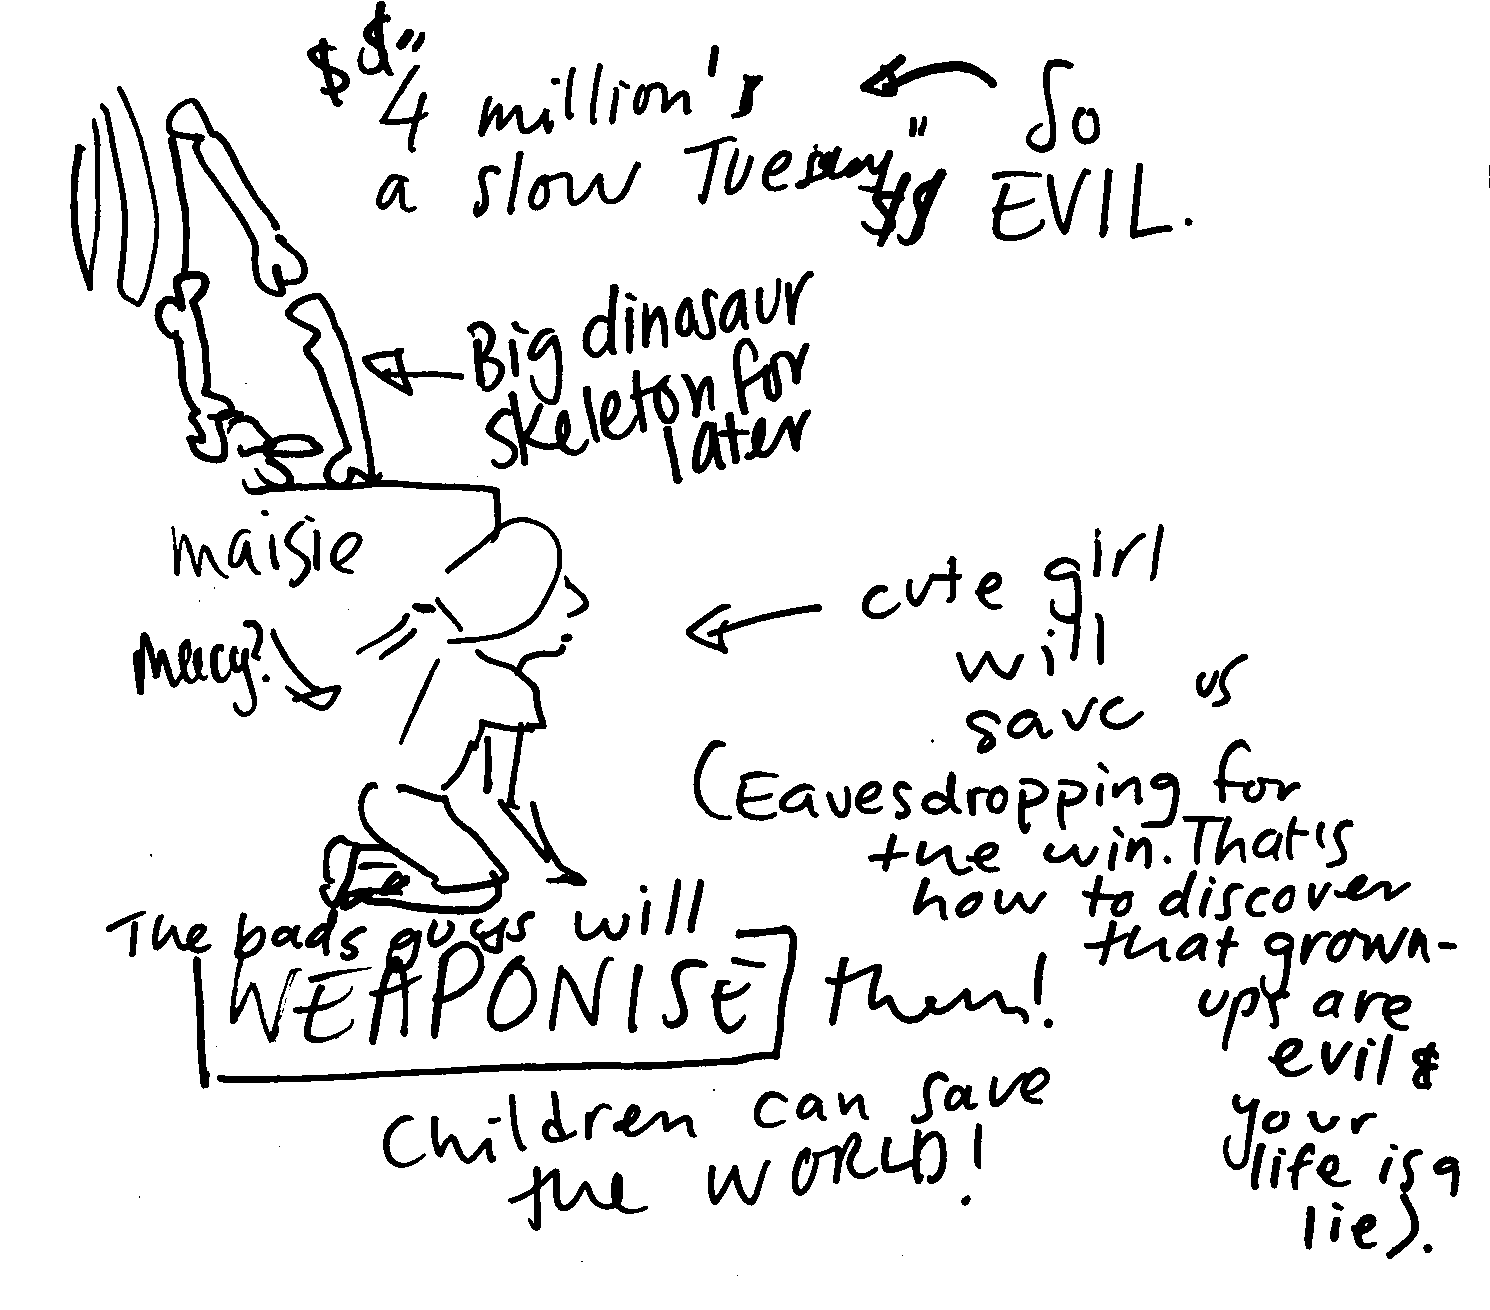 $ $ "4 million's
a slow Tuesday" $$
So
EVIL.
Big dinasaur
skeleton for
later
maisie
Mercy?
cute girl
will
save us
(Eavesdropping for
the win. That's
how to discover
that grown-
ups are
evil &
your
life is a
lie).
The bads guys will
WEAPONISE them!
Children can save
the WORLD!